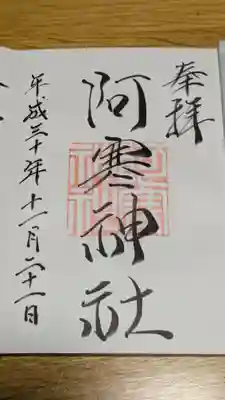 奉拝
阿寒神社
平成三十年十一月二十一日